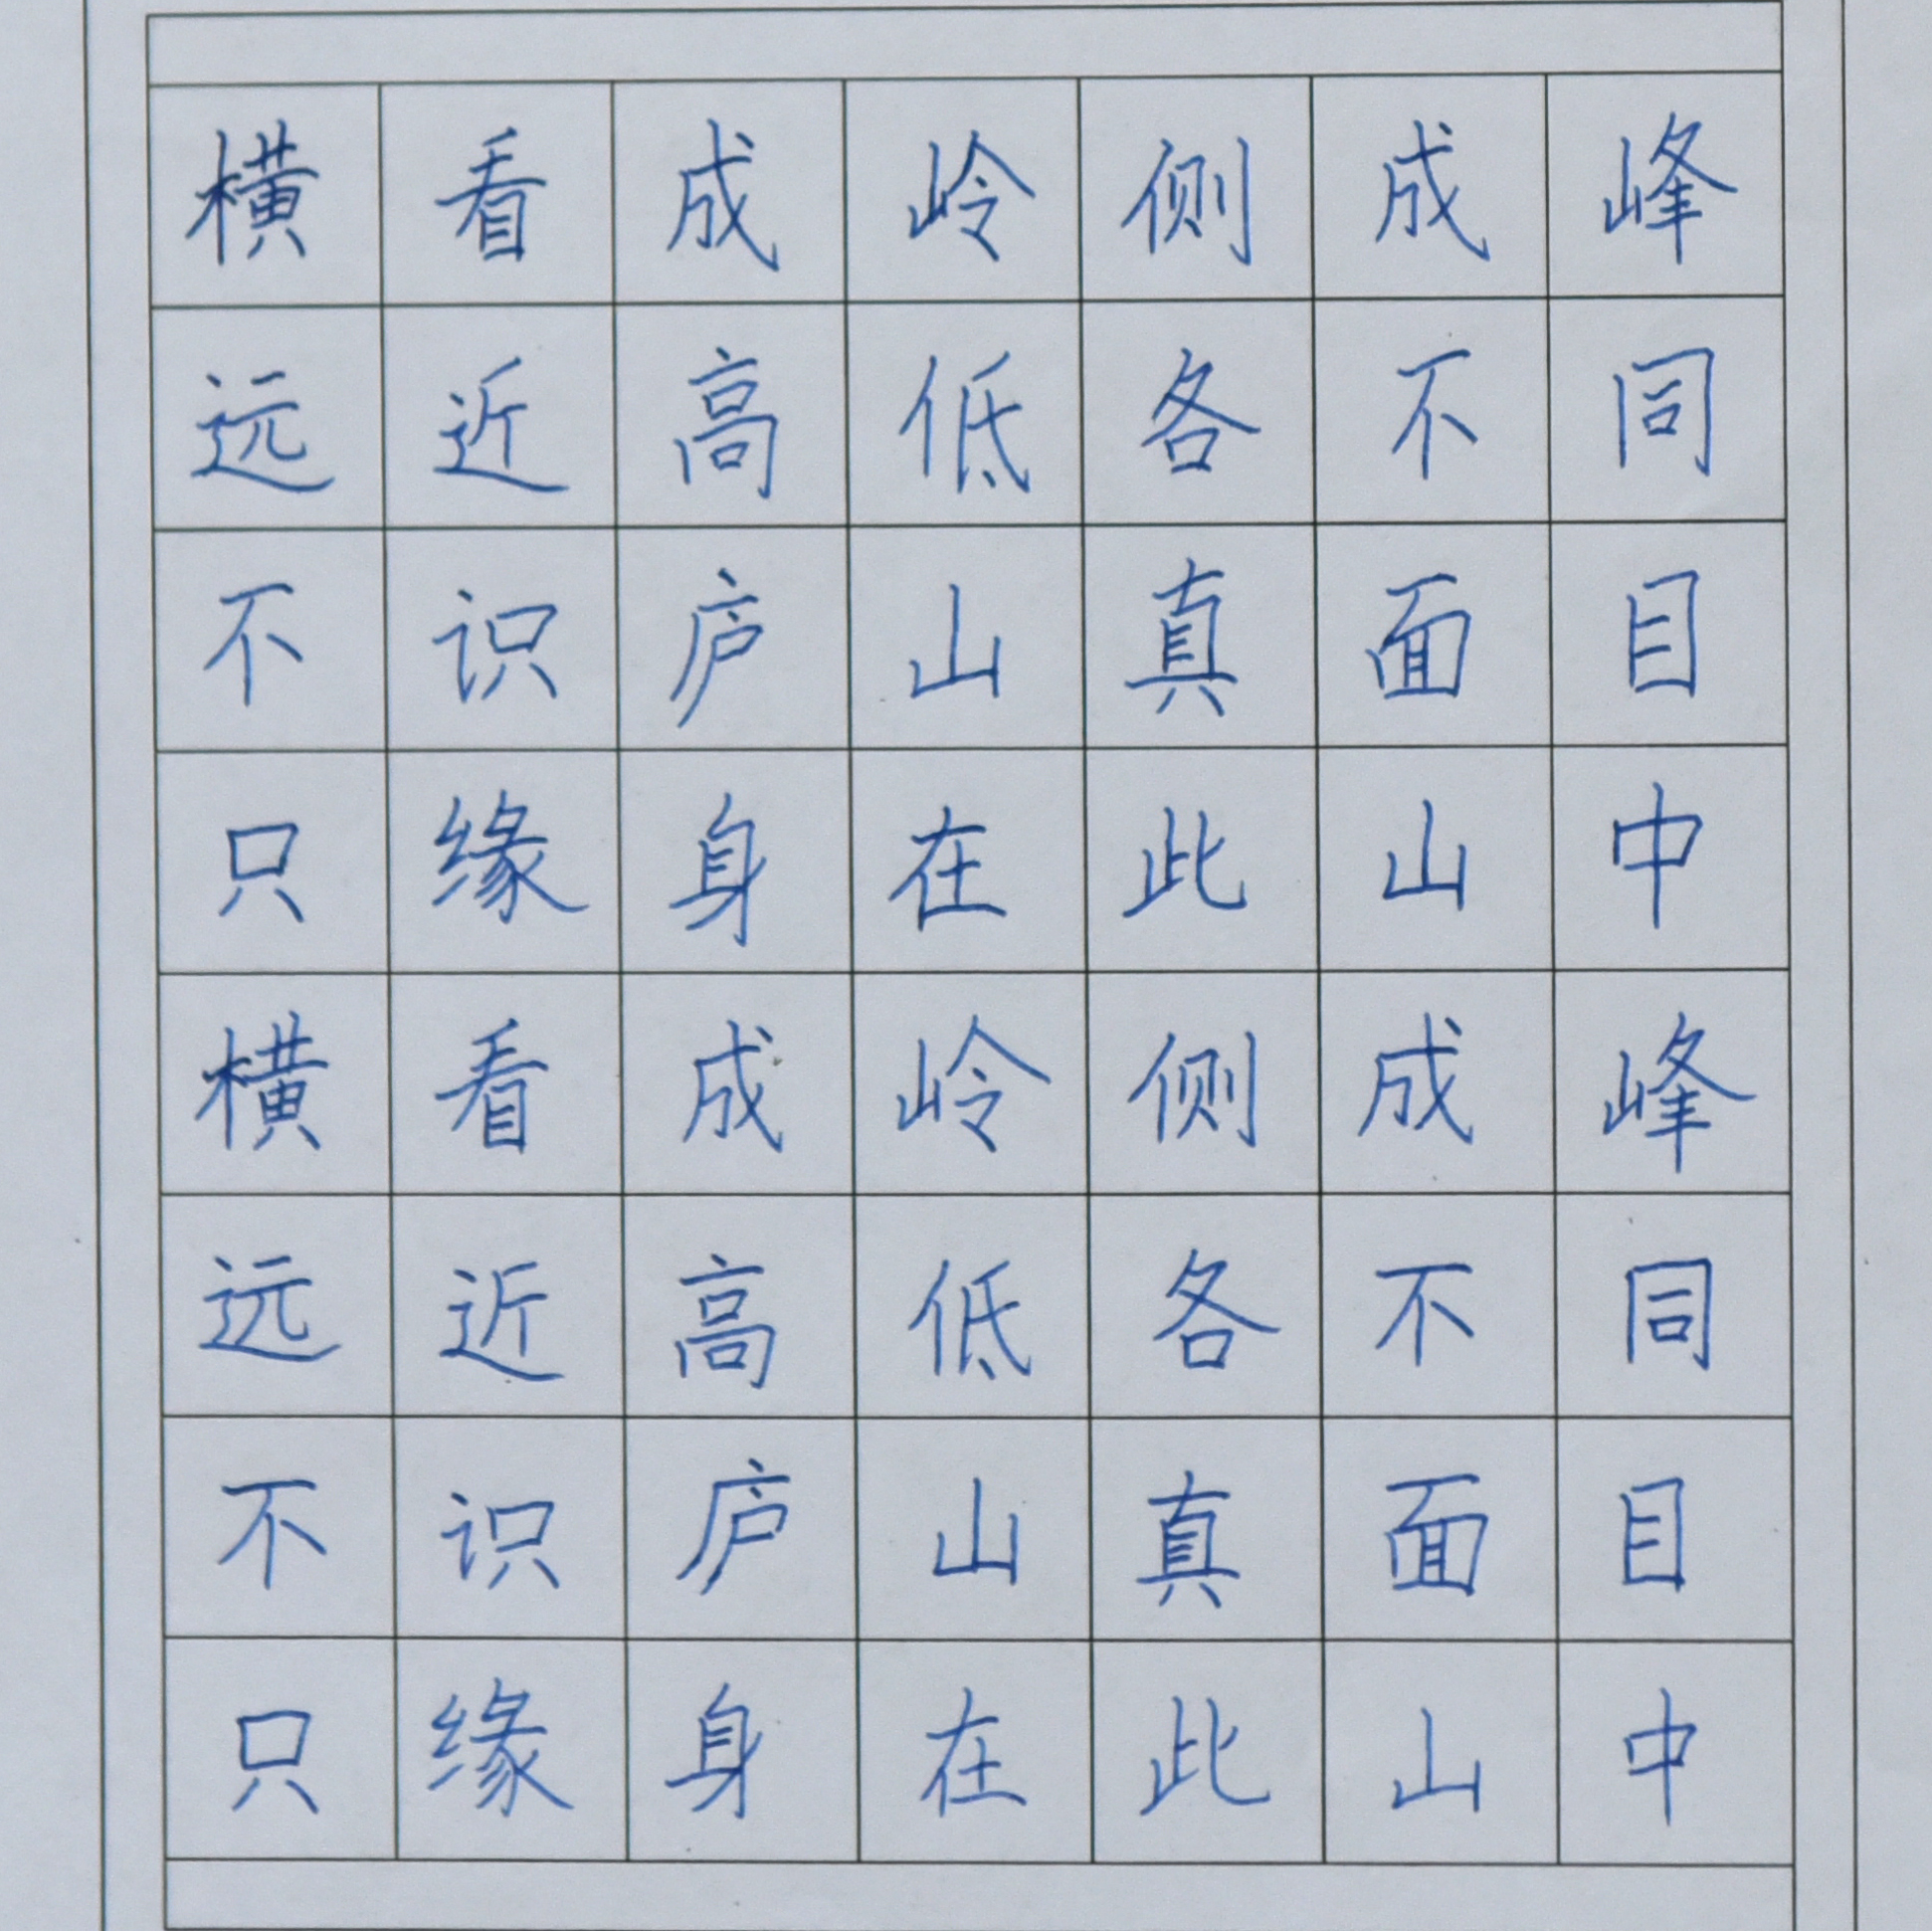 横看成岭侧成峰
远近高低各不同
不识庐山真面目
只缘身在此山中
横看成岭侧成峰
远近高低各不同
不识庐山真面目
只缘身在此山中